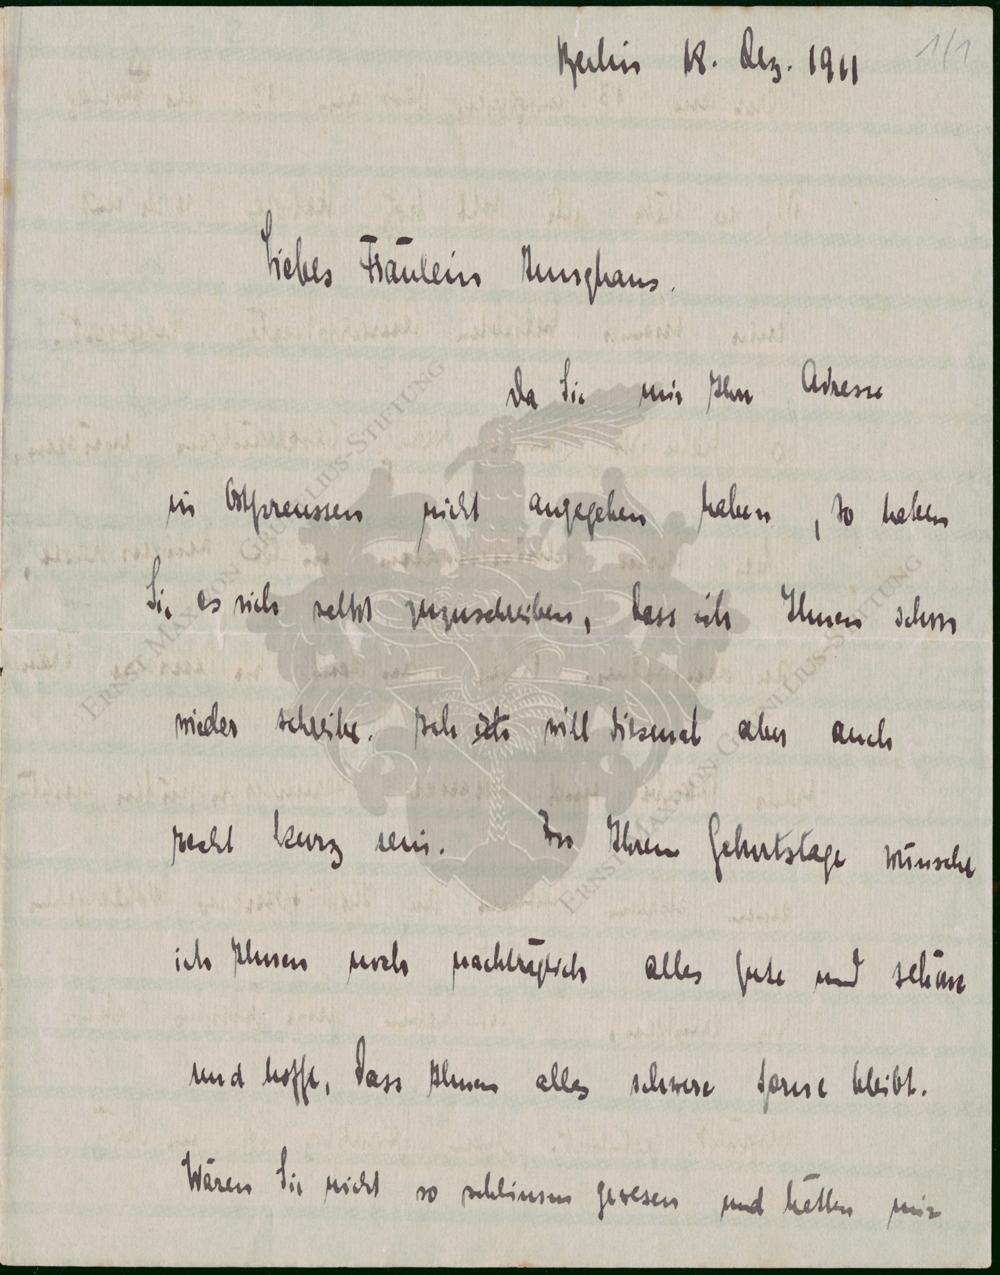 1/1
Berlin 18. Dez. 1911
Liebes Fräulein Junghans.
Da Sie mir Ihre Adresse
in Ostpreussen nicht angegeben haben, so haben
Sie es sich selbst zuzuschreiben, dass ich Ihnen schon
wieder schreibe. Ich will diesmal aber auch
recht kurz sein. Zu Ihrem Geburtstage wünsche
ich Ihnen noch nachträglich alles gute und schöne
und hoffe, dass Ihnen alles schwere ferne bleibt.
Wären Sie nicht so schlimm gewesen und hätten mir
ERNST MAX VON GRUNELIUS-STIFTUNG
ERNST MAX VON GRUNELIUS-STIFTUNG